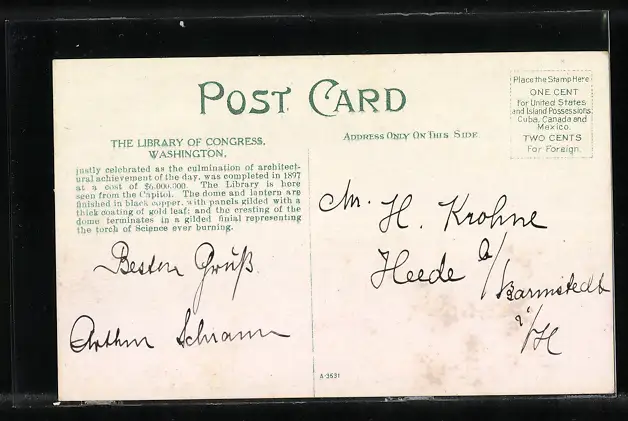 POST CARD
THE LIBRARY OF CONGRESS,
WASHINGTON,
justly celebrated as the culmination of architect-
ural achievement of the day, was completed in 1897
at a cost of $6,000,000. The Library is here
seen from the Capitol. The dome and lantern are
finished in black copper, with panels gilded with a
thick coating of gold leaf; and the cresting of the
dome terminates in a gilded finial representing
the torch of Science ever burning.
Besten Gruß
Arthur Schramm
ADDRESS ONLY ON THIS SIDE
Place the Stamp Here
ONE CENT
For United States
and Island Possessions
Cuba, Canada and
Mexico.
TWO CENTS
For Foreign.
Mr. H. Krohne
Heede a/
Barmstedt
i/H
A-3531